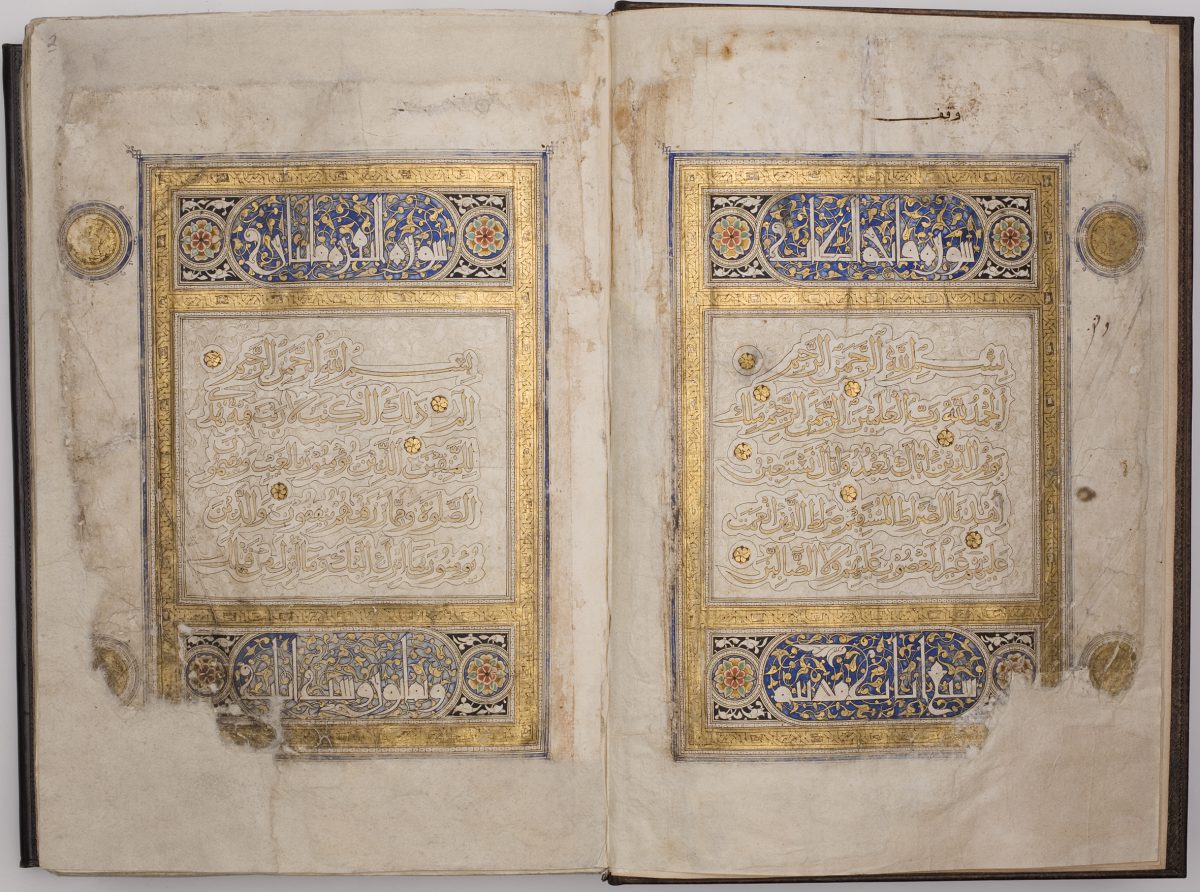 وقف
سورة فاتحة الكتاب
بسم الله الرحمن الرحيم
الحمد لله رب العلمين الرحمن الرحيم ملك
يوم الدين اياك نعبد واياك نستعين
اهدنا الصرط المستقيم صرط الذين انعمت
عليهم غير المغضوب عليهم ولا الضالين
سبع ايات مدنية
2
سورة البقرة مايتان
بسم الله الرحمن الرحيم
الم ذلك الكتب لا ريب فيه هدى
للمتقين الذين يؤمنون بالغيب ويقيمون
الصلوة ومما رزقنهم ينفقون والذين
يؤمنون بما انزل اليك وما انزل من قبلك
وثمانون وست ايات